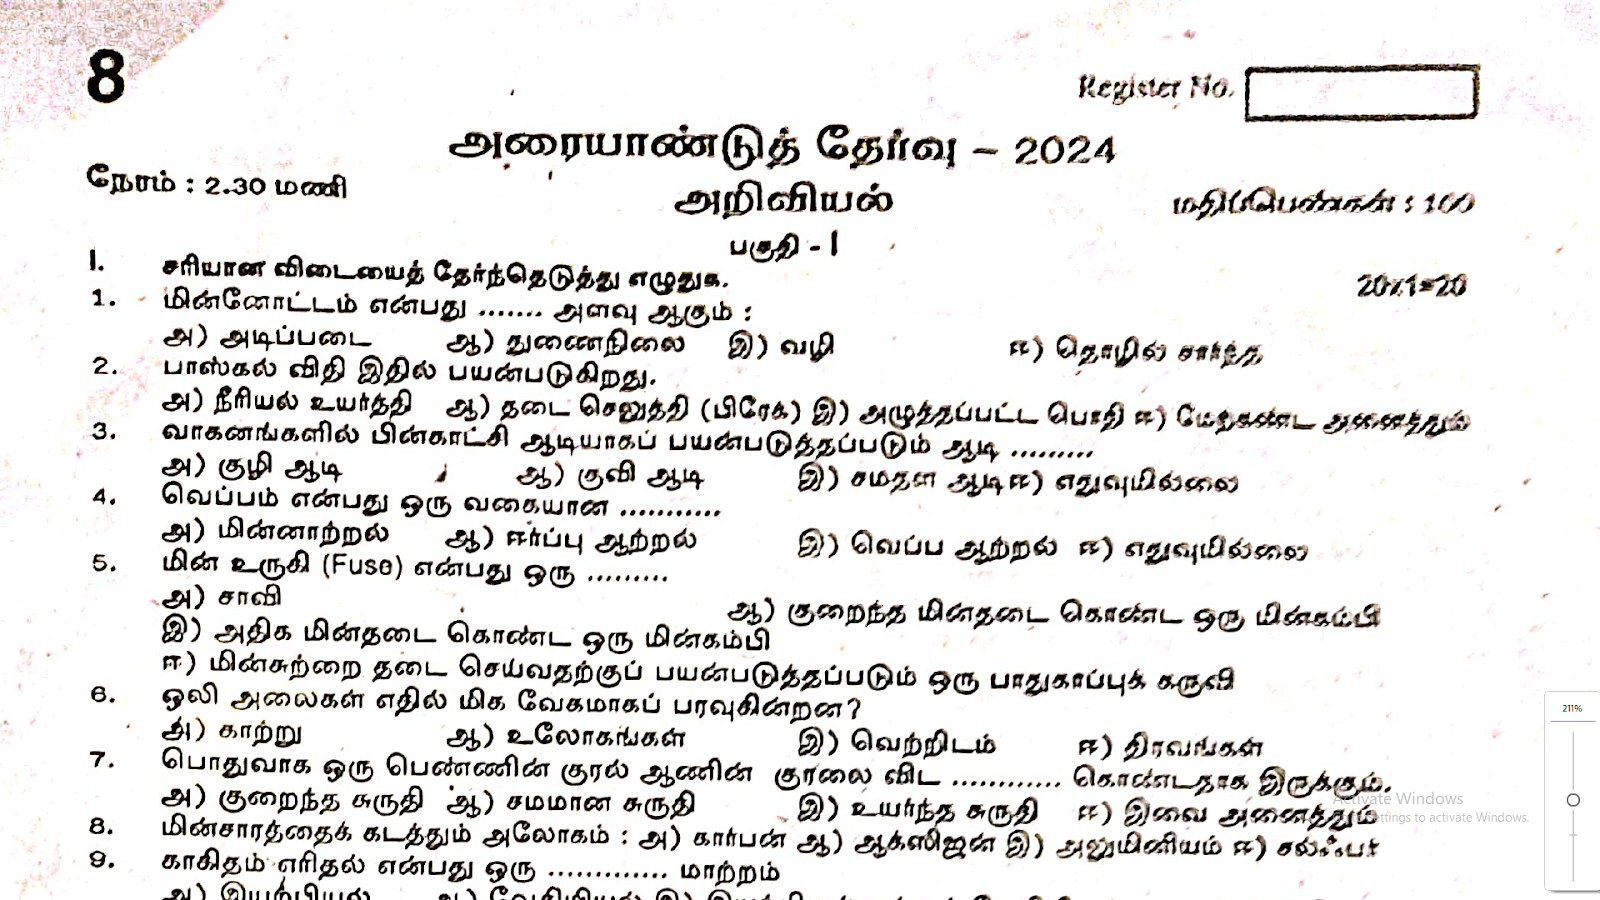 8
Register No.
அரையாண்டுத் தேர்வு – 2024
நேரம் : 2.30 மணி
அறிவியல்
மதிப்பெண்கள் : 100
பகுதி - I
I. சரியான விடையைத் தேர்ந்தெடுத்து எழுதுக. 20x1=20
1. மின்னோட்டம் என்பது ....... அளவு ஆகும் :
அ) அடிப்படை ஆ) துணைநிலை இ) வழி ஈ) தொழில் சார்ந்த
2. பாஸ்கல் விதி இதில் பயன்படுகிறது.
அ) நீரியல் உயர்த்தி ஆ) தடை செலுத்தி (பிரேக்) இ) அழுத்தப்பட்ட பொதி ஈ) மேற்கண்ட அனைத்தும்
3. வாகனங்களில் பின்காட்சி ஆடியாகப் பயன்படுத்தப்படும் ஆடி .........
அ) குழி ஆடி ஆ) குவி ஆடி இ) சமதள ஆடி ஈ) எதுவுமில்லை
4. வெப்பம் என்பது ஒரு வகையான ...........
அ) மின்னாற்றல் ஆ) ஈர்ப்பு ஆற்றல் இ) வெப்ப ஆற்றல் ஈ) எதுவுமில்லை
5. மின் உருகி (Fuse) என்பது ஒரு .........
அ) சாவி ஆ) குறைந்த மின்தடை கொண்ட ஒரு மின்கம்பி
இ) அதிக மின்தடை கொண்ட ஒரு மின்கம்பி
ஈ) மின்சுற்றை தடை செய்வதற்குப் பயன்படுத்தப்படும் ஒரு பாதுகாப்புக் கருவி
6. ஒலி அலைகள் எதில் மிக வேகமாகப் பரவுகின்றன?
அ) காற்று ஆ) உலோகங்கள் இ) வெற்றிடம் ஈ) திரவங்கள்
7. பொதுவாக ஒரு பெண்ணின் குரல் ஆணின் குரலை விட ............ கொண்டதாக இருக்கும்.
அ) குறைந்த சுருதி ஆ) சமமான சுருதி இ) உயர்ந்த சுருதி ஈ) இவை அனைத்தும்
8. மின்சாரத்தைக் கடத்தும் அலோகம் : அ) கார்பன் ஆ) ஆக்ஸிஜன் இ) அலுமினியம் ஈ) சல்ஃபர்
9. காகிதம் எரிதல் என்பது ஒரு ............. மாற்றம்
அ) இயற்பியல் ஆ) வேதியியல் இ)
211%
Activate Windows
ettings to activate Windows.